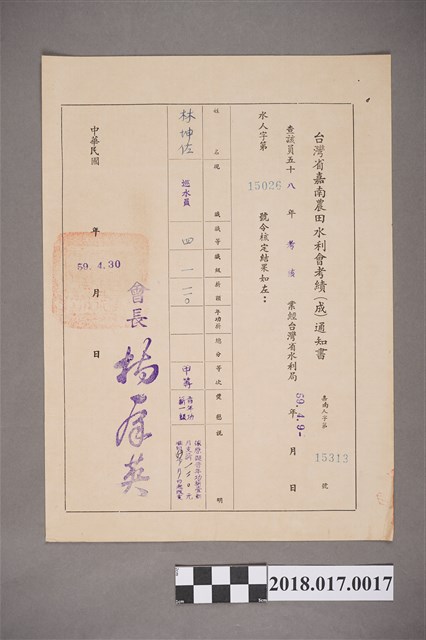 台灣省嘉南農田水利會考績(成)通知書
嘉南人字第 15313 號
查該員五十八年考績業經台灣省水利局 59.4.9- 年 月 日
水人字第 15026 號令核定結果如左：
姓名 現職 職等 職級 薪額 年功薪 總分 等次 獎懲 說明
林坤佐 巡水員 四 一 二〇 甲等
中華民國 年 月 日
59.4.30
會長 楊群英
2018.017.0017
cm